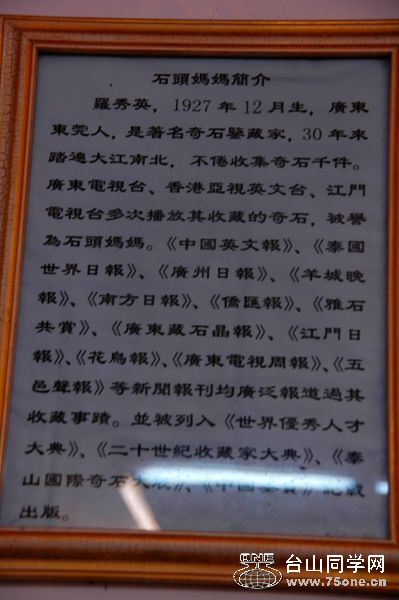 石頭媽媽簡介
羅秀英，1927年12月生，廣東
東莞人，是著名奇石鑒藏家，30年來
踏遍大江南北，不倦收集奇石千件。
廣東電視台、香港亞視英文台、江門
電視台多次播放其收藏的奇石，被譽
為石頭媽媽。《中國英文報》、《泰國
世界日報》、《廣州日報》、《羊城晚
報》、《南方日報》、《僑匯報》、《雅石
共賞》、《廣東藏石晶報》、《江門日
報》、《花鳥報》、《廣東電視周報》、《五
邑聲報》等新聞報刊均廣泛報道過其
收藏事蹟。並被列入《世界優秀人才
大典》、《二十世紀收藏家大典》、《泰
山國際奇石大展》、《中國
出版。
ONE
台山同学网
www.75one.cn